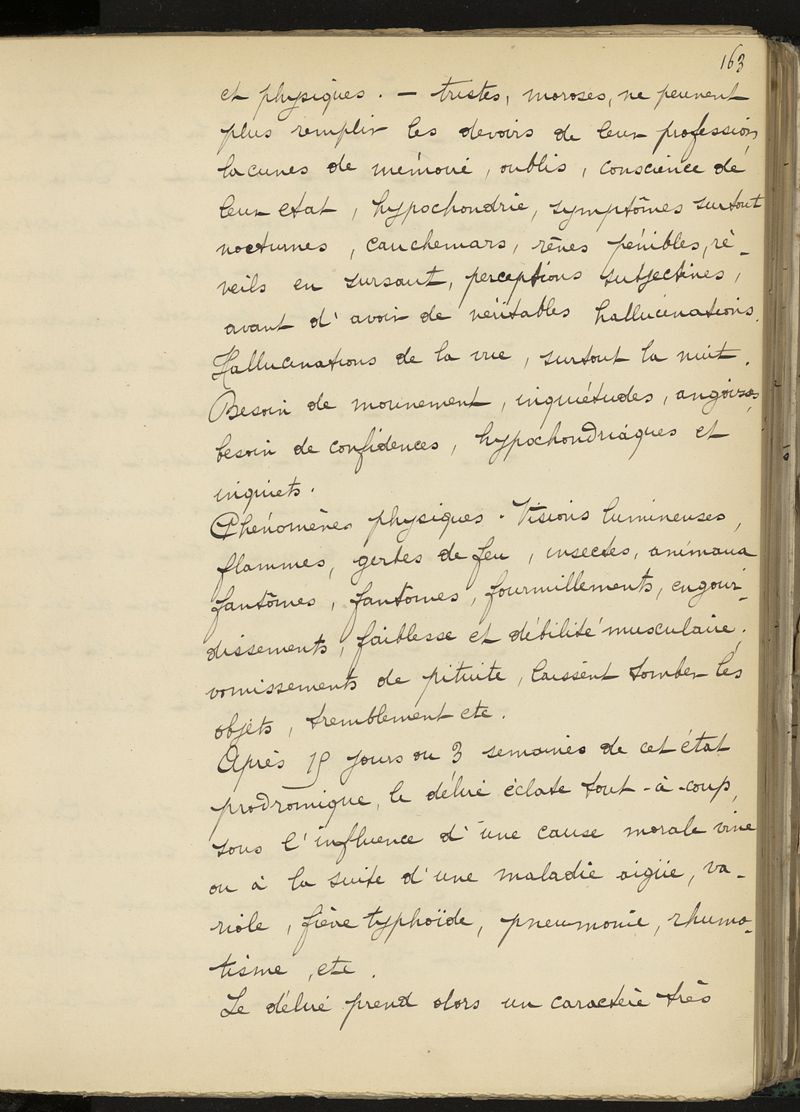 163
et physiques. — tristes, moroses, ne peuvent
plus remplir les devoirs de leur profession,
lacunes de mémoire, oublis, conscience de
leur etat, hypochondrie, symptômes surtout
nocturnes, cauchemars, rêves pénibles, ré-
veils en sursaut, perceptions subjectives,
avant d'avoir de véritables hallucinations.
Hallucinations de la vue, surtout la nuit.
Besoin de mouvement, inquiétudes, angoisses,
besoin de confidences, hypochondriaques et
inquiets.
Phénomènes physiques. Visions lumineuses,
flammes, gerbes de feu, insectes, animaux
fantômes, fantômes, fourmillements, engour-
dissements, faiblesse et débilité musculaire.
vomissements de pituite, laissent tomber les
objets, tremblement etc.
Après 15 jours ou 3 semaines de cet état
prodromique, le délire éclate tout-à-coup,
sous l'influence d'une cause morale vive
ou à la suite d'une maladie aigüe, va-
riole, fièvre typhoïde, pneumonie, rhuma-
tisme, etc.
Le délire prend alors un caractère très